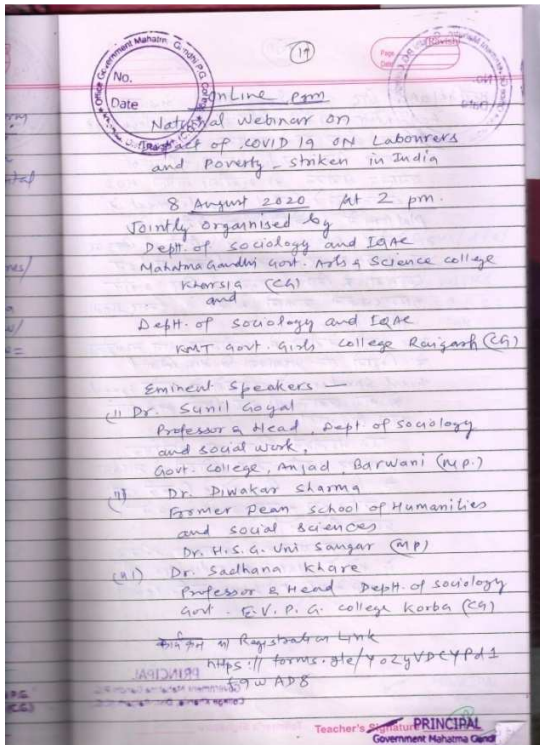 19
Page
Date
Office Government Mahatma Gandhi P.G. College
No.
Date
OnLine pgm
National Webinar on
Impact of COVID 19 ON Labourers
and Poverty striken in India
8 August 2020 At 2 pm.
Jointly Organised by
Deptt. of Sociology and IQAC
Mahatma Gandhi Govt. Arts & Science college
Kharsia (CG)
and
Deptt. of Sociology and IQAC
KMT Govt. Girls College Raigarh (CG)
Eminent Speakers —
(i) Dr. Sunil Goyal
Professor & Head, Dept. of Sociology
and Social Work,
Govt. College, Anjad, Barwani (M.P.)
(ii) Dr. Diwakar Sharma
Former Dean School of Humanities
and Social Sciences
Dr. H.S.G. Uni Sangar (MP)
(iii) Dr. Sadhana Khare
Professor & Head Deptt. of Sociology
Govt. E.V.P.G. College Korba (CG)
Registration Link
https://forms.gle/Yo2yVDCYPd1
f9wAD8
Teacher's Signature
PRINCIPAL
Government Mahatma Gandhi